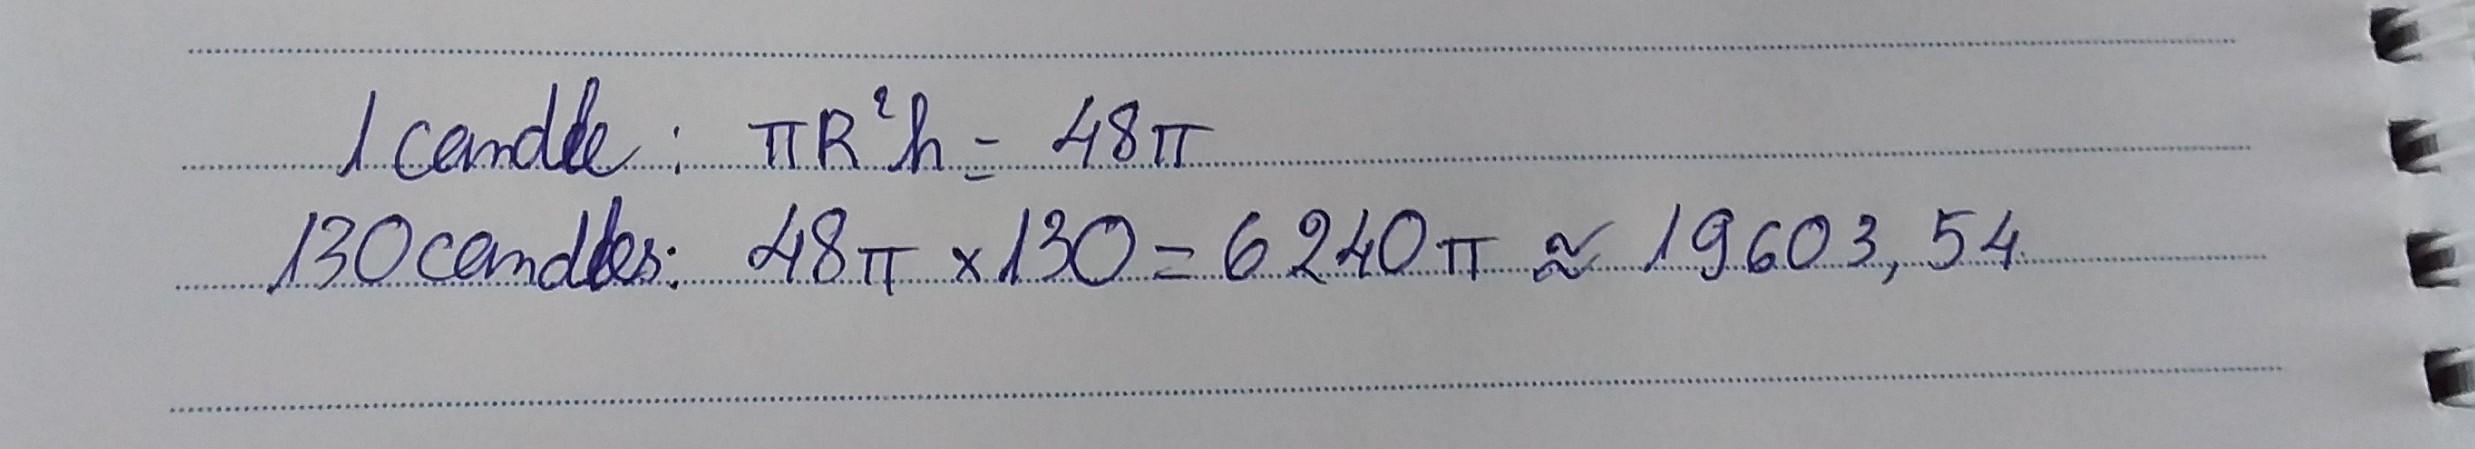 1 candle: πR²h = 48π
130 candles: 48π × 130 = 6240π ≈ 19603,54